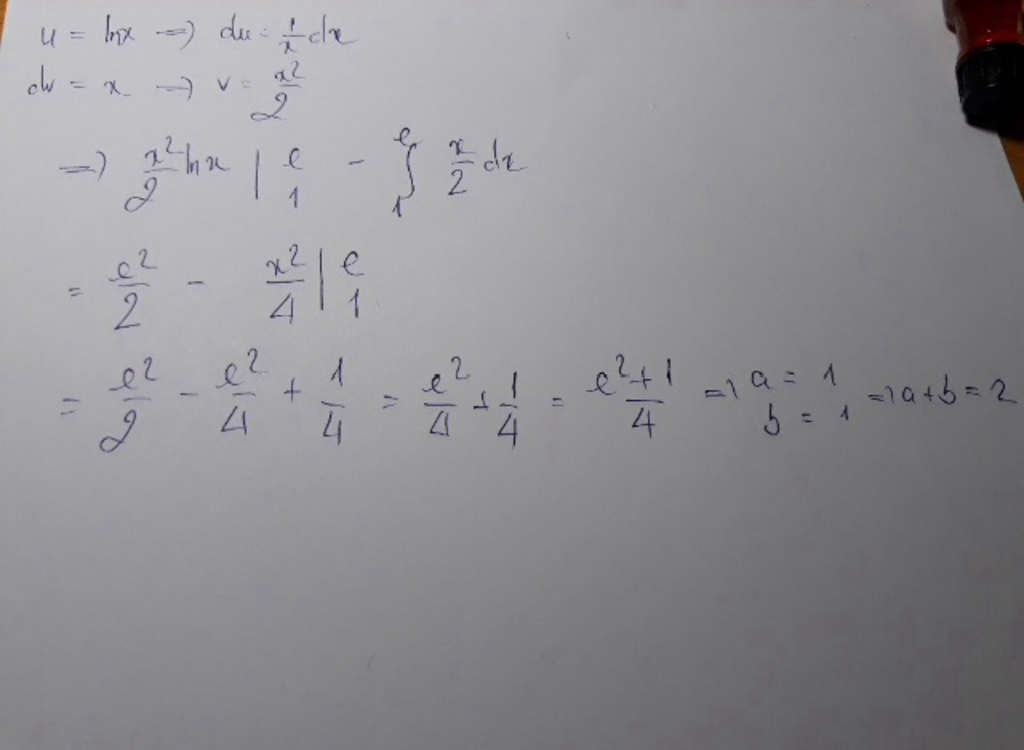 u = lnx => du = 1/x dx
dv = x => v = x²/2
=> x²/2 lnx | e 1 - ∫ e 1 x/2 dx
= e²/2 - x²/4 | e 1
= e²/2 - e²/4 + 1/4 = e²/4 + 1/4 = e²+1/4 => a = 1 b = 1 => a+b = 2